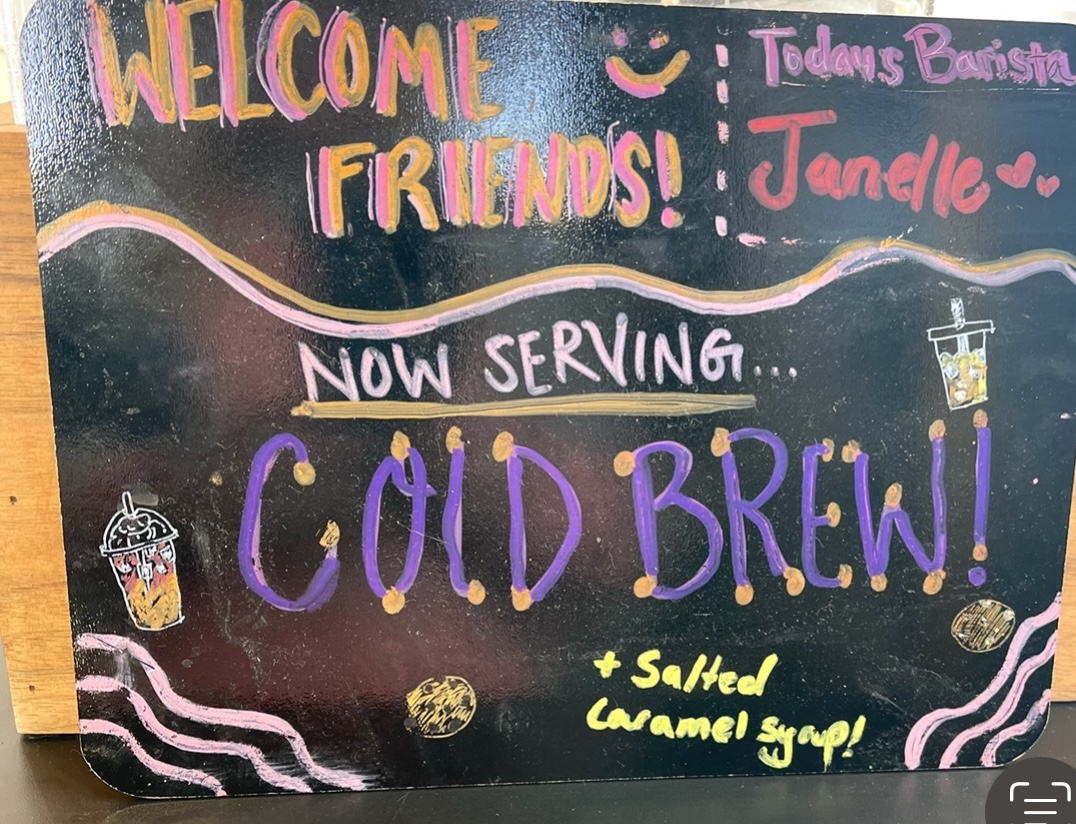 WELCOME
FRIENDS!
Todays Barista
Janelle
NOW SERVING...
COLD BREW!
+ Salted
Caramel syrup!